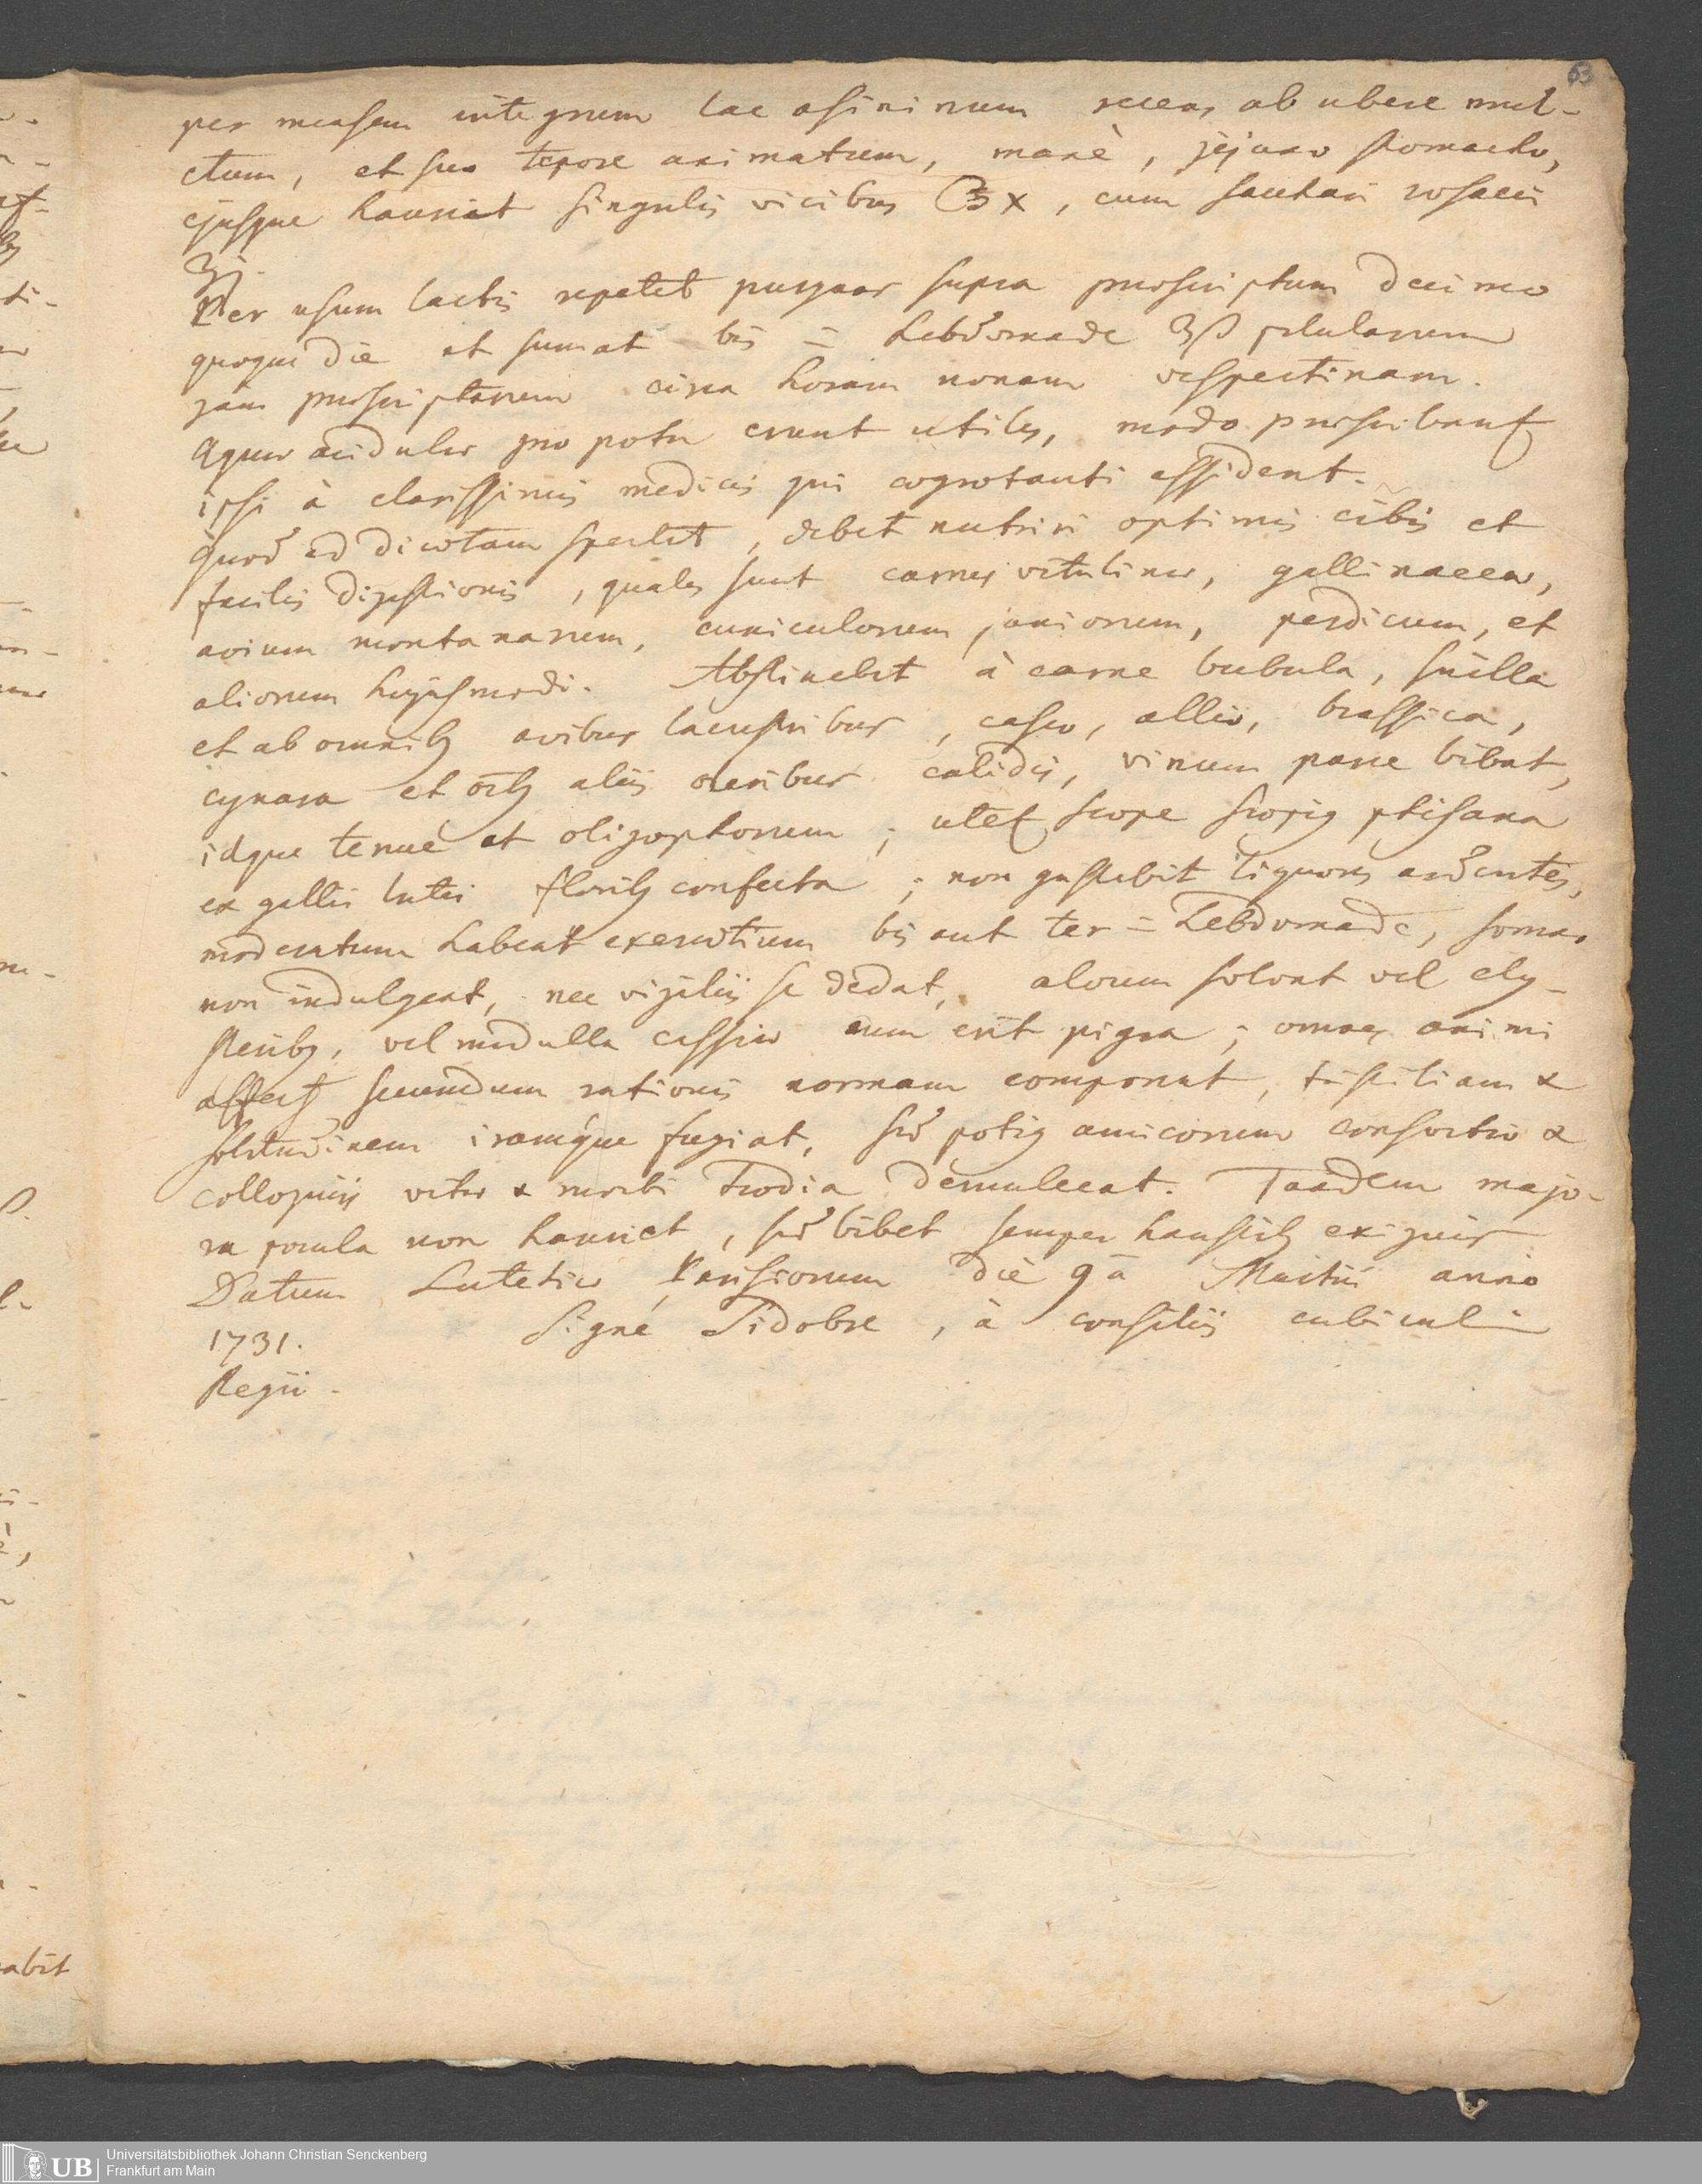 63
per mensem integrum lac asininum recens ab ubere mul-
ctum, et suo tepore animatum, manè, jejuno stomacho,
ejusque hauriat singulis vicibus ℥x, cum sacchari rosacei
ʒj.
Per usum lactis repetet purgans supra praescriptum decimo
quoque die et sumat bis = hebdomade ʒß pilularum
jam praescriptarum circa horam nonam vespertinam.
Aquae acidulae pro potu erunt utiles, modo praescribantr
ipsi à clarissimis medicis qui aegrotanti assident.
Quod ad diaetam spectat, debet nutriri optimis cibis et
facilis digestionis, quales sunt carnes vitulinae, gallinaceae,
avium montanarum, cuniculorum juniorum, perdicum, et
aliorum hujusmodi. Abstinebit à carne bubula, suilla
et ab omnib9 avibus lacustribus, caseo, allio, brassica,
cynara et oīb9 aliis oleribus calidis, vinum parce bibat,
idque tenue et oligophorum; utetr saepe saepi9 ptisana
ex gallii lutei florib9 confecta; non gustabit liquores ardentes,
moderatum habeat exercitium bis aut ter = hebdomade, somno
non indulgeat, nec vigiliis se dedat, alvum solvat vel cly-
sterib9, vel medulla cassiae cum erit pigra; omnes animi
affect9 secundum rationis normam componat, tristitiam &
solitudinem iramque fugiat, sed poti9 amicorum consortio &
colloquiis vitae & morbi taedia demulceat. Tandem majo-
ra pocula non hauriet, sed bibet semper haustib9 exiguis
Datum Lutetiae Parisiorum die 9ā Martii anno
1731. Signé Sidobre, à consiliis cubiculi
Regii.
abit
UB
Universitätsbibliothek Johann Christian Senckenberg
Frankfurt am Main